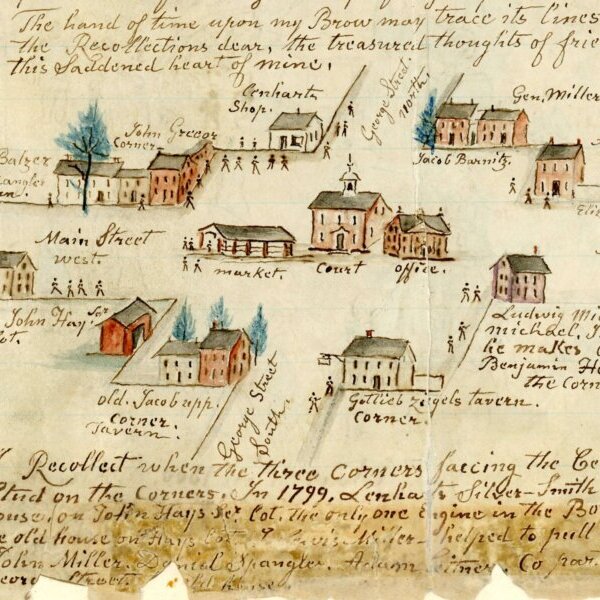 The hand of time upon my Brow may trace its lines
the Recollections dear, the treasured thoughts of frie
this Saddened heart of mine.
Lenharts
Shop.
George Street.
north.
Gen. Miller
John Greer
Corner.
Jacob Barnitz.
Balzer
Spangler
Eliz
Main Street
west.
market.
Court
office.
John Hay Ser
ot.
Ludwig Mi
michael. J
he makes
Benjamin He
the Corn
old. Jacob upp.
Corner.
Tavern.
George Street
South.
Gotlieb Ziegels tavern.
Corner.
I Recollect when the three Corners faccing the Ce
Stud on the Corners. In 1799. Lenharts Silver-Smith
ouse, on John Hays Ser lot, the only one Engine in the Bo
e old house on Hays lot. Lewis Miller helped to pull
John Miller. Daniel Spangler. Adam Leitner. Co par.
George Street. house.